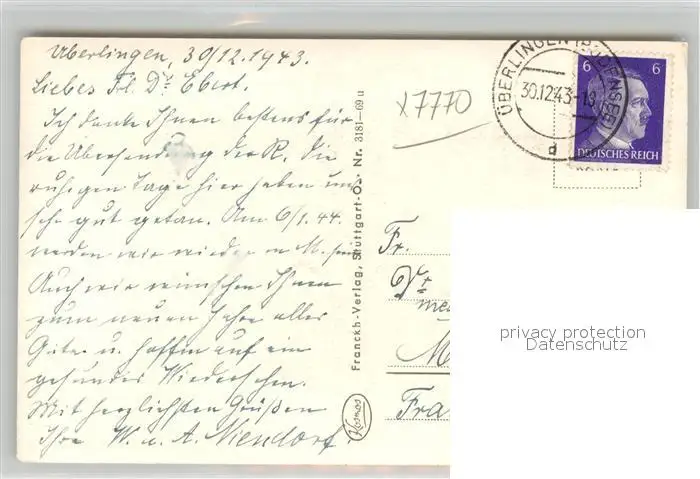 Überlingen, 30/12.1943.
Liebes Frl. Dr. Ebert.
Ich danke Ihnen bestens für
die Übersendung der R. Die
ruhigen Tage hier haben uns
sehr gut getan. Am 6/1.44.
werden wir wieder in M. sein
Auch wir wünschen Ihnen
zum neuen Jahre alles
Gute u. hoffen auf ein
gesundes Wiedersehen.
Mit herzlichsten Grüßen
Ihre W. u. A. Niendorf
x7770
Franckh-Verlag, Stuttgart-O. Nr. 3181—69 u
Kosmos
ÜBERLINGEN (BODENSEE)
30.12.43-18
d
6 6
DEUTSCHES REICH
Fr.
Dr.
med
M
Fra
privacy protection
Datenschutz